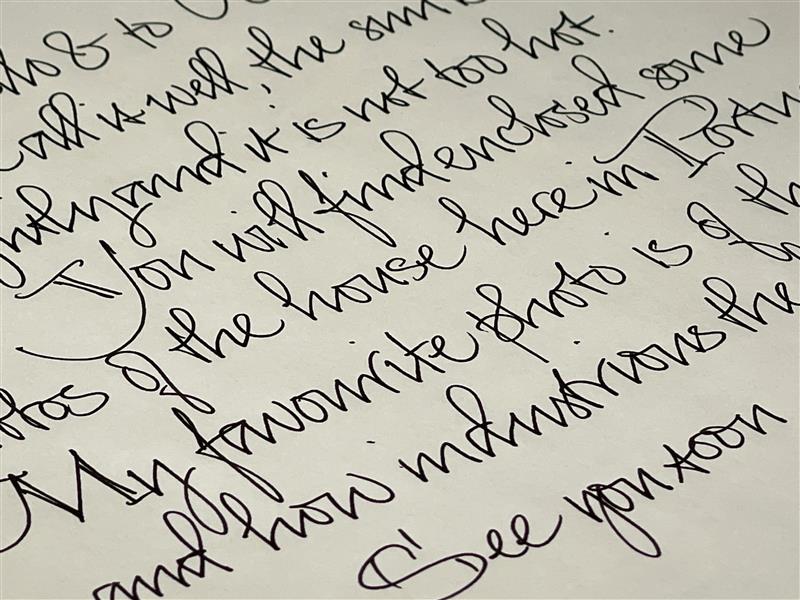 & to
all is well, the sun
and it is not too hot.
You will find enclosed some
of the house here in Portu
My favourite photo is of th
and how industrious the
See you soon